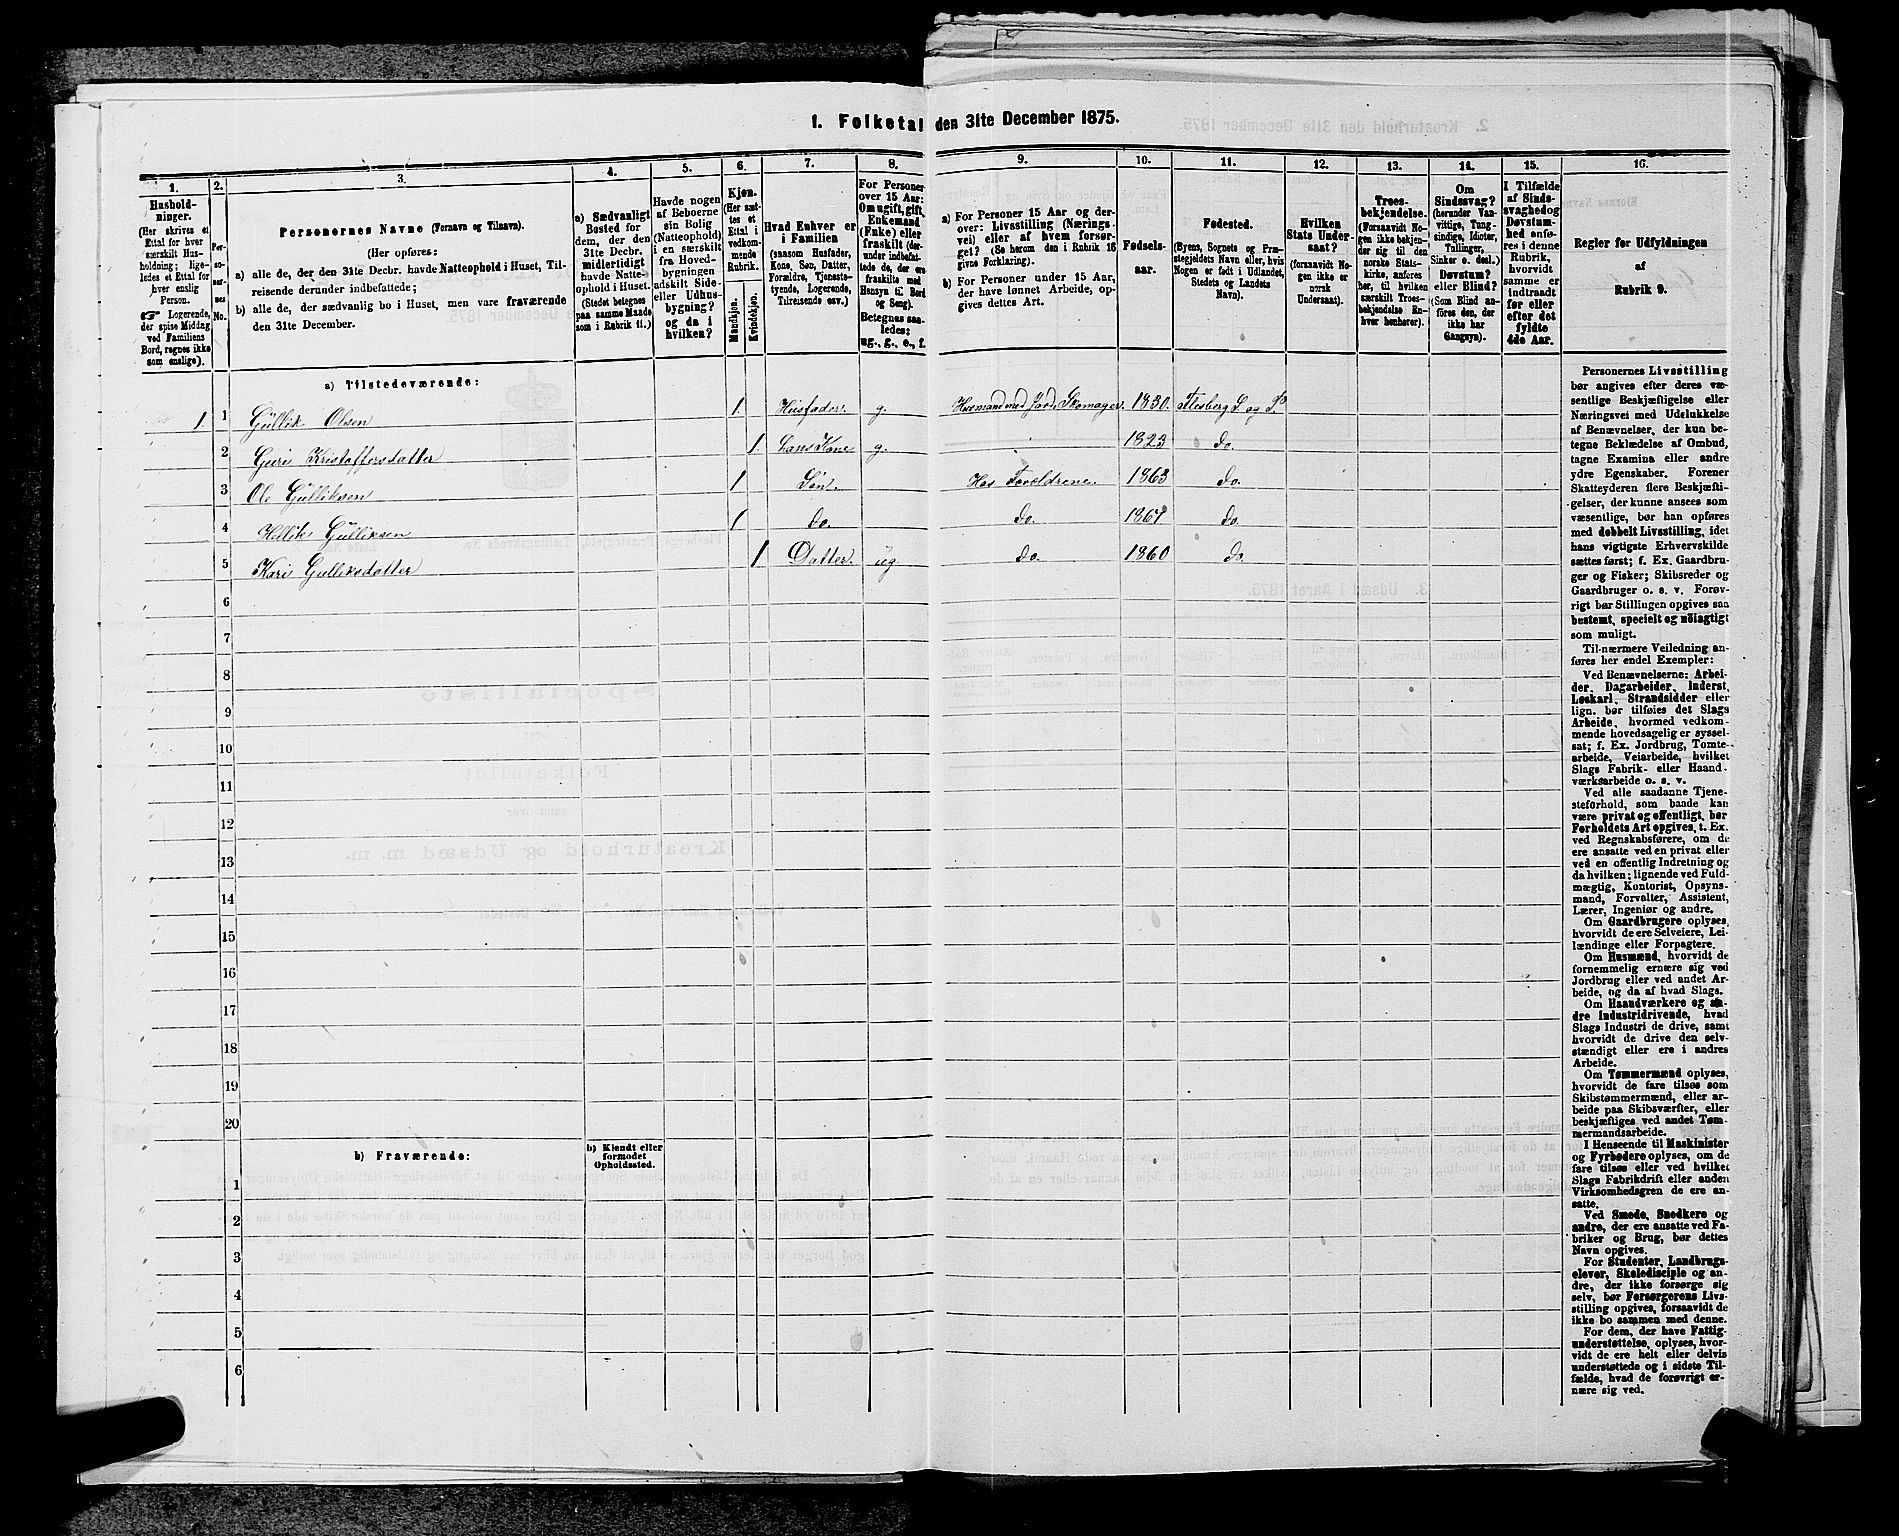 1. Folketal den 31te December 1875.
1. 2. 3. 4. 5. 6. 7. 8. 9. 10. 11. 12. 13. 14. 15. 16.
Hushold-
ninger.
(Her skrives et
Ettal for hver
særskilt Hus-
holdning; lige-
ledes et Ettal for
hver enslig
Person.
Logerende,
der spise Middag
ved Familiens
Bord, regnes ikke
som enslige).
Per-
so-
ner-
nes
No.
Personernes Navne (Fornavn og Tilnavn).
(Her opføres:
a) alle de, der den 31te Decbr. havde Natteophold i Huset, Til-
reisende derunder indbefattede;
b) alle de, der sædvanlig bo i Huset, men vare fraværende
den 31te December.
a) Sædvanligt
Bosted for
dem, der den
31te Decbr.
midlertidigt
havde Natte-
ophold i Huset.
(Stedet betegnes
paa samme Maade
som i Rubrik 11.)
Havde nogen
af Beboerne
sin Bolig
(Natteophold)
i en særskilt
fra Hoved-
bygningen
adskilt Side-
eller Udhus-
bygning?
og da i
hvilken?
Kjøn.
(Her sæt-
tes et
Ettal i
vedkom-
mende
Rubrik.
Mandkjøn.
Kvindekjøn.
Hvad Enhver er
i Familien
(saasom Husfader,
Kone, Søn, Datter,
Forældre, Tjeneste-
tyende, Logerende,
Tilreisende osv.)
For Personer
over 15 Aar:
Om ugift, gift,
Enkemand
(Enke) eller
fraskilt (der-
under indbefat-
tede de, der ere
fraskilte med
Hensyn til Bord
og Seng).
Betegnes saa-
ledes:
ug., g., e., f.
a) For Personer 15 Aar og der-
over: Livsstilling (Nærings-
vei) eller af hvem forsør-
get? (Se herom den i Rubrik 16
givne Forklaring).
b) For Personer under 15 Aar,
der have lønnet Arbeide, op-
gives dettes Art.
Fødsels-
aar.
Fødested.
(Byens, Sognets og Præ-
stegjeldets Navn eller, hvis
Nogen er født i Udlandet,
Stedets og Landets
Navn).
Hvilken
Stats Under-
saat?
(forsaavidt No-
gen ikke er
norsk
Undersaat).
Troes-
bekjendelse.
(Forsaavidt No-
gen ikke bekjen-
der sig til den
norske Stats-
kirke, anføres
her, til hvilken
særskilt Troes-
bekjendelse En-
hver henhører).
Om
Sindssvag?
(herunder Van-
vittige, Tung-
sindige, Idioter,
Tullinger,
Sinker o. desl.)
Døvstum?
eller Blind?
(Som Blind an-
føres den, der
ikke har
Gangsyn).
I Tilfælde
af Sinds-
svaghed og
Døvstum-
hed anfø-
res i denne
Rubrik,
hvorvidt
samme er
indtraadt
før eller
efter det
fyldte
4de Aar.
Regler for Udfyldningen
af
Rubrik 9.
a) Tilstedeværende:
1 1 Gullik Olsen 1 Husfader. g. Husmand med Jord, Skomager. 1830. Flesberg S. og P.
2 Guri Kristoffersdatter 1. hans Kone g. 1823 do.
3 Ole Gulliksen 1 Søn. Hos Forældrene. 1863 do.
4 Hellik Gulliksen 1 do. do. 1867 do.
5 Kari Gulliksdatter 1 Datter. ug. do. 1860 do.
6
7
8
9
10
11
12
13
14
15
16
17
18
19
20
b) Fraværende:
b) Kjendt eller
formodet
Opholdssted.
1
2
3
4
5
6
Personernes Livsstilling
bør angives efter deres væ-
sentlige Beskjæftigelse eller
Næringsvei med Udelukkelse
af Benævnelser, der kun be-
tegne Beklædelse af Ombud,
tagne Examina eller andre
ydre Egenskaber. Forener
Skatteyderen flere Beskjæfti-
gelser, der kunne ansees som
væsentlige, bør han opføres
med dobbelt Livsstilling, idet
hans vigtigste Erhvervskilde
sættes først; f. Ex. Gaardbru-
ger og Fisker; Skibsreder og
Gaardbruger o. s. v. Forøv-
rigt bør Stillingen opgives saa
bestemt, specielt og nöiagtigt
som muligt.
Til nærmere Veiledning an-
føres her endel Exempler:
Ved Benævnelserne: Arbei-
der, Dagarbeider, Inderst,
Løskarl, Strandsidder eller
lign. bør tilføies det Slags
Arbeide, hvormed vedkom-
mende hovedsagelig er syssel-
sat; f. Ex. Jordbrug, Tomte-
arbeide, Veiarbeide, hvilket
Slags Fabrik- eller Haand-
værksarbeide o. s. v.
Ved alle saadanne Tjene-
steforhold, som baade kan
være privat og offentligt, bør
Forholdets Art opgives, t. Ex.
ved Regnskabsførere, om de
ere ansatte ved en privat eller
ved en offentlig Indretning og
da hvilken; lignende ved Fuld-
mægtig, Kontorist, Opsyns-
mand, Forvalter, Assistent,
Lærer, Ingeniør og andre.
Om Gaardbrugere oplyses,
hvorvidt de ere Selveiere, Lei-
lændinge eller Forpagtere.
Om Husmænd, hvorvidt de
fornemmelig ernære sig ved
Jordbrug eller ved andet Ar-
beide, og da af hvad Slags.
Om Haandværkere og an-
dre Industridrivende, hvad
Slags Industri de drive, samt
hvorvidt de drive den selv-
stændigt eller ere i andres
Arbeide.
Om Tømmermænd oplyses,
hvorvidt de fare tilsøs som
Skibstømmermænd, eller ar-
beide paa Skibsværfter, eller
beskjæftiges ved andet Tøm-
mermandsarbeide.
I Henseende til Maskinister
og Fyrbødere oplyses, om de
fare tilsøs eller ved hvilket
Slags Fabrikdrift eller anden
Virksomhedsgren de ere an-
satte.
Ved Smede, Snedkere og
andre, der ere ansatte ved Fa-
briker og Brug, bør dettes
Navn opgives.
For Studenter, Landbrugs-
elever, Skoledisciple og an-
dre, der ikke forsørge sig
selv, bør Forsørgerens Livs-
stilling opgives, forsaavidt de
ikke bo sammen med denne.
For dem, der have Fattig-
understøttelse, oplyses, hvor-
vidt de ere helt eller delvis
understøttede og i sidste Til-
fælde, hvad de forøvrigt er-
nære sig ved.